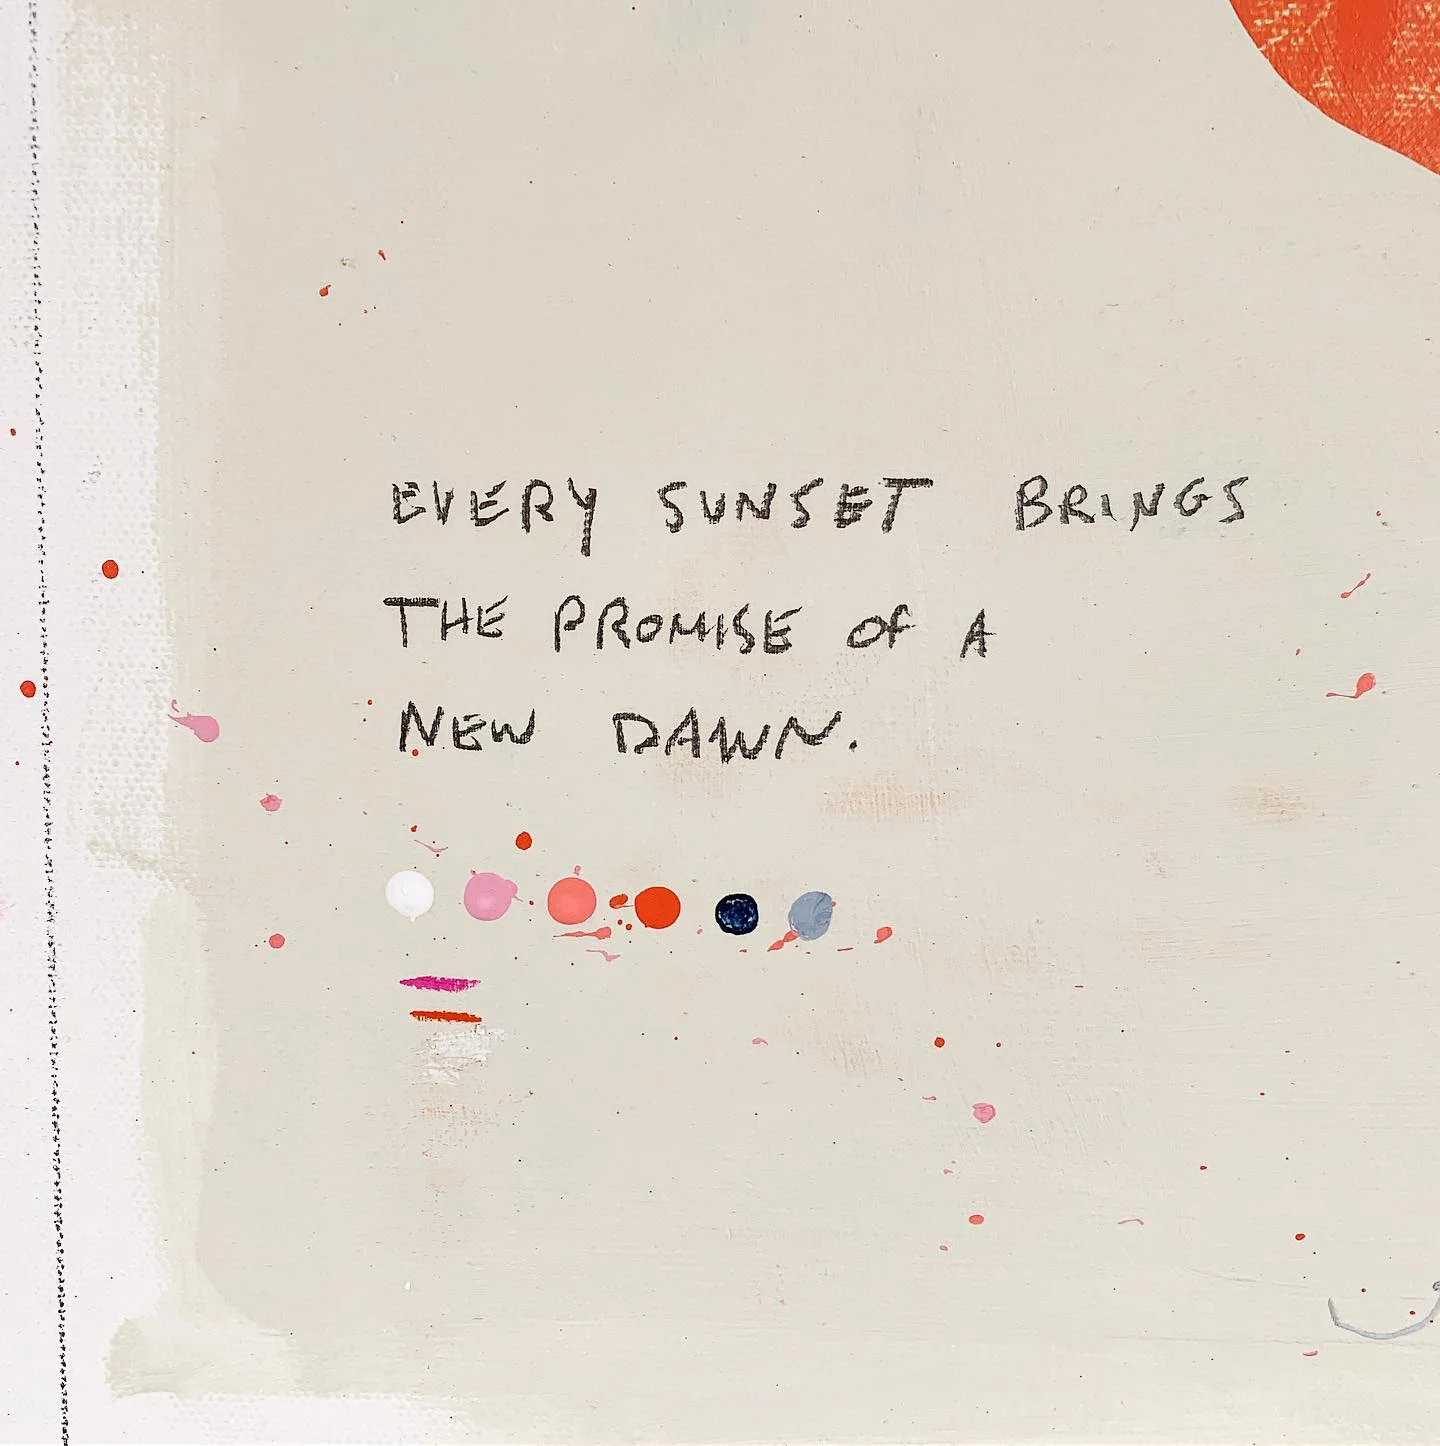 EVERY SUNSET BRINGS
THE PROMISE OF A
NEW DAWN.